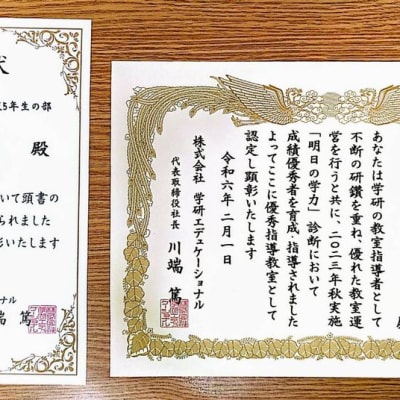 5年生の部
殿
いて頭書の
られました
彰いたします
ナル
端 篤
あなたは学研の教室指導者として
不断の研鑽を重ね、優れた教室運
営を行うと共に、二〇二三年秋実施
「明日の学力」診断において
成績優秀者を育成・指導されました
よってここに優秀指導教室として
認定し顕彰いたします
令和六年二月一日
株式会社 学研エデュケーショナル
代表取締役社長 川端 篤